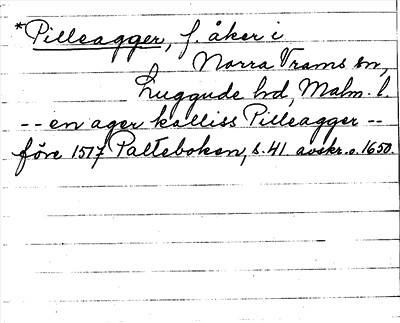 *Pilleagger, f. åker i
Norra Vrams sn,
Luggude hd, Malm. l.
-- en ager kalliss Pilleagger --
före 1517 Palteboken, s. 41. avskr. o. 1650.